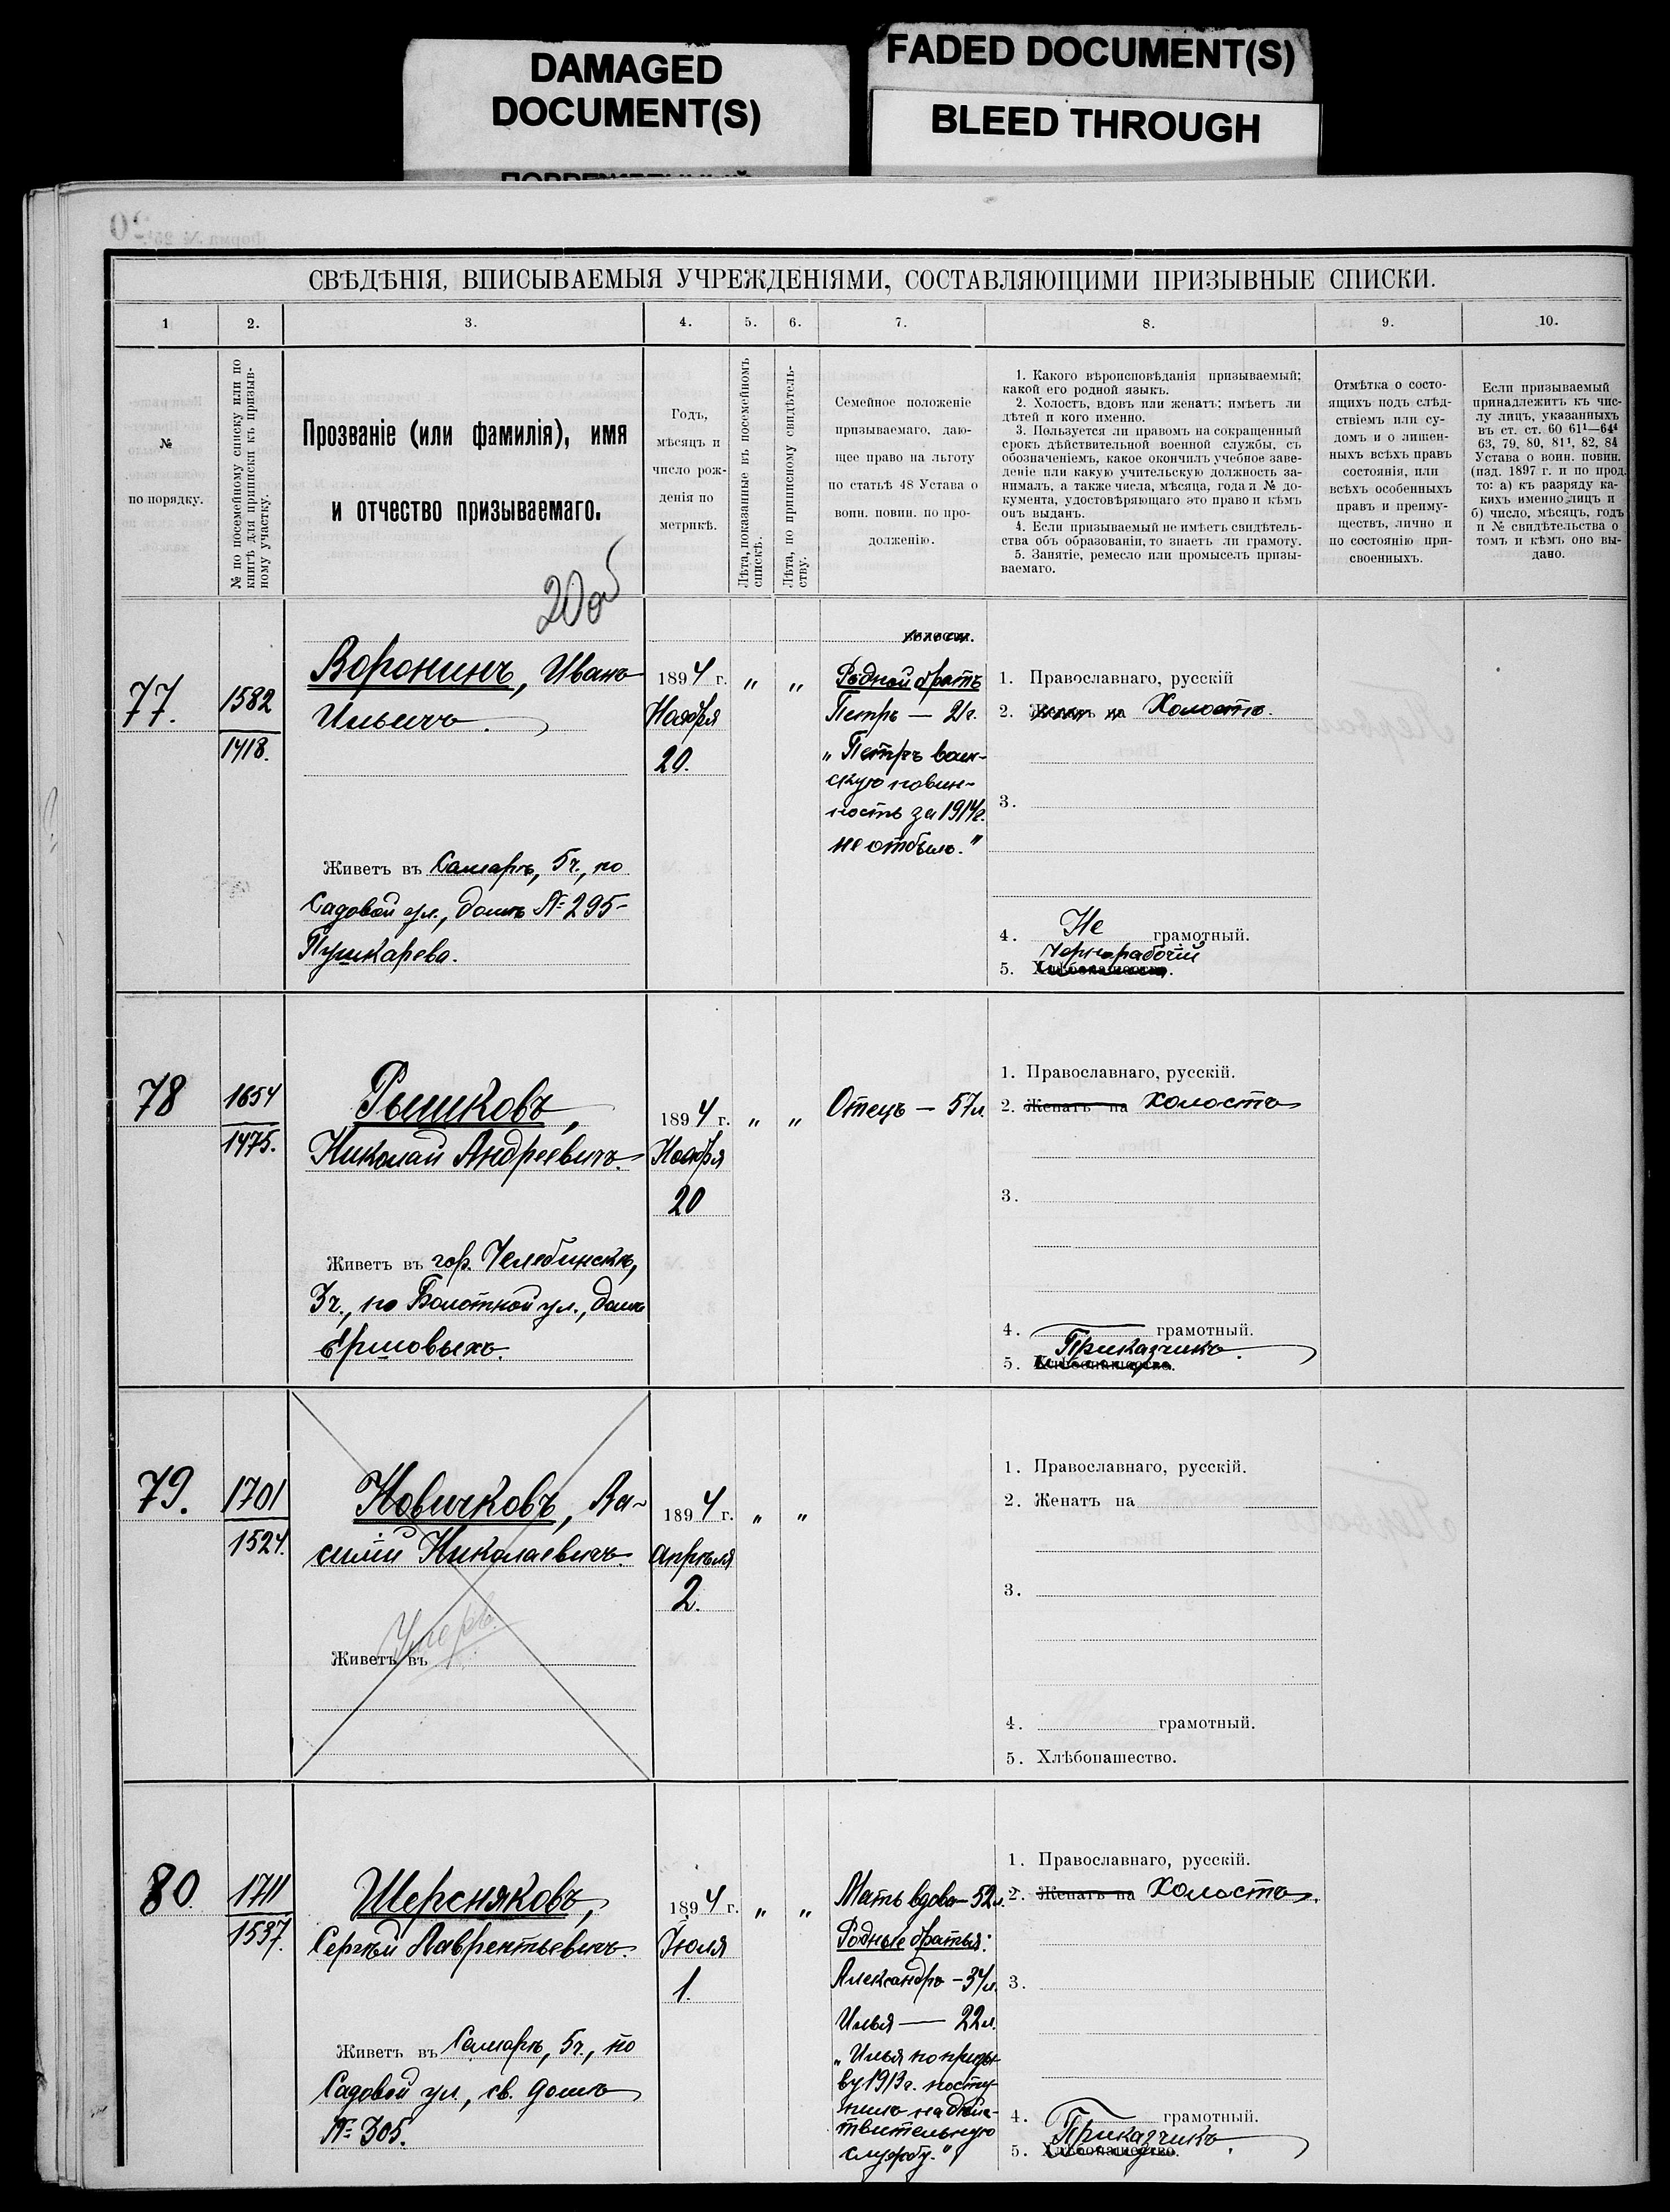 DAMAGED
DOCUMENT(S)
FADED DOCUMENT(S)
BLEED THROUGH
СВѢДѢНІЯ, ВПИСЫВАЕМЫЯ УЧРЕЖДЕНІЯМИ, СОСТАВЛЯЮЩИМИ ПРИЗЫВНЫЕ СПИСКИ.
1
2.
3.
4.
5.
6.
7.
8.
9.
10.
№
по порядку.
№ по посемейному списку или по
книгѣ для приписки къ призыв-
ному участку.
Прозваніе (или фамилія), имя
и отчество призываемаго.
Годъ,
мѣсяцъ и
число рож-
денія по
метрикѣ.
Лѣта, показанные въ посемейномъ
спискѣ.
Лѣта, по приписному свидѣтель-
ству.
Семейное положеніе
призываемаго, даю-
щее право на льготу
по статьѣ 48 Устава о
воин. повин. по про-
долженію.
1. Какого вѣроисповѣданія призываемый;
какой его родной языкъ.
2. Холостъ, вдовъ или женатъ; имѣетъ ли
дѣтей и кого именно.
3. Пользуется ли правомъ на сокращенный
срокъ дѣйствительной военной службы, съ
обозначеніемъ, какое окончилъ учебное заве-
деніе или какую учительскую должность за-
нималъ, а также числа, мѣсяца, года и № до-
кумента, удостовѣряющаго это право и кѣмъ
онъ выданъ.
4. Если призываемый не имѣетъ свидѣтель-
ства объ образованіи, то знаетъ ли грамоту.
5. Занятіе, ремесло или промыселъ призы-
ваемаго.
Отмѣтка о состо-
ящихъ подъ слѣд-
ствіемъ или су-
домъ и о лишен-
ныхъ всѣхъ правъ
состоянія, или
всѣхъ особенныхъ
правъ и преиму-
ществъ, лично и
по состоянію при-
своенныхъ.
Если призываемый
принадлежитъ къ чис-
лу лицъ, указанныхъ
въ ст. ст. 60 61¹—64⁴
63, 79, 80, 81¹, 82, 84
Устава о воин. повин.
(изд. 1897 г. и по прод.
то: а) къ разряду ка-
кихъ именно лицъ и
б) число, мѣсяцъ, годъ
и № свидѣтельства о
томъ и кѣмъ оно вы-
дано.
20об
77.
1582
1418.
Воронинъ, Иванъ
Ильичъ.
Живетъ въ Самарѣ, 5ч., по
Садовой ул., домъ №295-
Пушкарева.
1894 г.
Ноября
20.
„
„
Родной братъ
Петръ — 21г.
„Петръ воин-
скую повин-
ность за 1914г.
не отбылъ."
1. Православнаго, русскій
2. Холостъ.
3.
4. Не грамотный.
Чернорабочій
5. Хлѣбопашество.
78
1654
1475.
Рышковъ,
Николай Андреевичъ.
Живетъ въ гор. Челябинскѣ,
3ч., по Болотной ул., домъ
Ершовыхъ.
1894 г.
Ноября
20
„
„
Отецъ — 57л.
1. Православнаго, русскій.
2. Женатъ на Холостъ
3.
4. грамотный.
Приказчикъ.
5. Хлѣбопашество.
79.
1701
1524.
Новичковъ, Ва-
силій Николаевичъ.
Умеръ.
Живетъ въ
1894 г.
Апрѣля
2.
„
„
1. Православнаго, русскій.
2. Женатъ на
3.
4. грамотный.
5. Хлѣбопашество.
80.
1711
1537.
Шерсняковъ,
Сергѣй Лаврентьевичъ.
Живетъ въ Самарѣ, 5ч., по
Садовой ул., св. домъ
№ 305.
1894 г.
Іюля
1.
„
„
Мать вдова — 52л.
Родные братья:
Александръ — 34л.
Илья — 22л.
„Илья по призы-
ву 1913г. посту-
пилъ на дѣйс-
твительную
службу."
1. Православнаго, русскій.
2. Женатъ на Холостъ.
3.
4. грамотный.
Приказчикъ.
5. Хлѣбопашество.